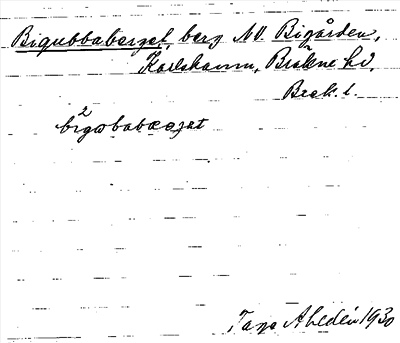 Bigubbaberget, berg NV. Bigården,
Karlshamn, Bräkne hd,
Blek. l.
2
bigɷbabærjət
Tage Ahldén 1930